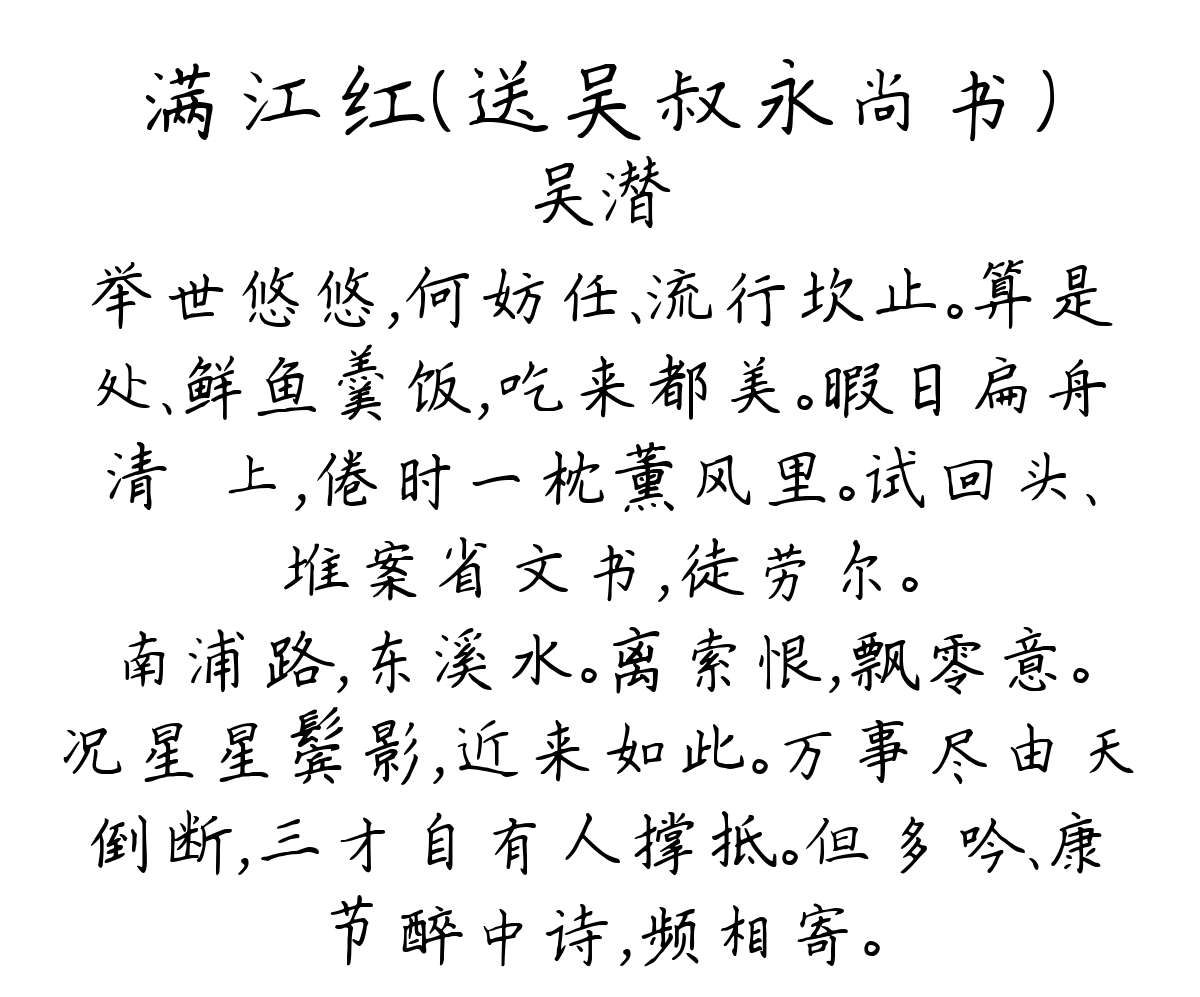 满江红(送吴叔永尚书)
吴潜
举世悠悠,何妨任、流行坎止。算是
处、鲜鱼羹饭,吃来都美。暇日扁舟
清 上,倦时一枕薰风里。试回头、
堆案省文书,徒劳尔。
南浦路,东溪水。离索恨,飘零意。
况星星鬓影,近来如此。万事尽由天
倒断,三才自有人撑抵。但多吟、康
节醉中诗,频相寄。